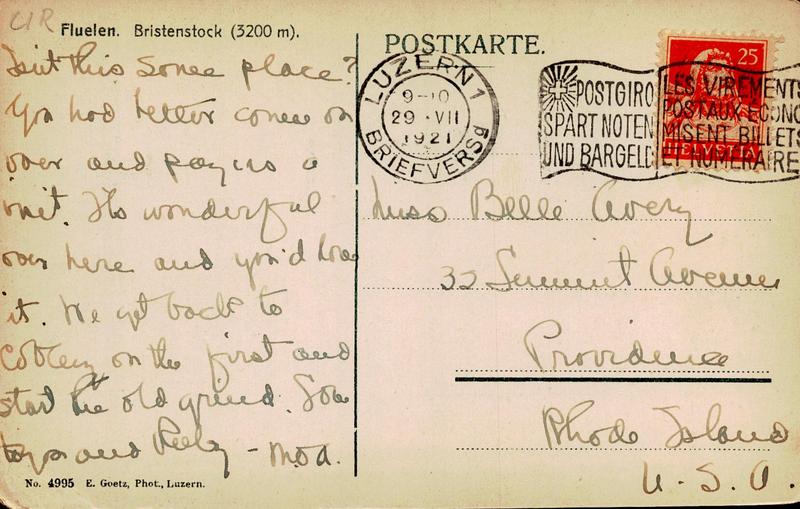 C/R
Fluelen. Bristenstock (3200 m).
Isn't this some place?
You had better come on
over and pay us a
visit. Its wonderful
over here and you'd love
it. We get back to
Coblenz on the first and
start the old grind.
and - 
POSTKARTE.
LUZERN 1
9-10
29.VII
1921
BRIEFVERSD
POSTGIRO
SPART NOTEN
UND BARGELD
LES VIREMENTS
POSTAUX ECONO
MISENT BILLETS
ET NUMERAIRE
25
HELVETIA
Miss Belle Avery
32 Summit Avenue
Providence
Rhode Island
U.S.A.
No. 4995 E. Goetz, Phot., Luzern.